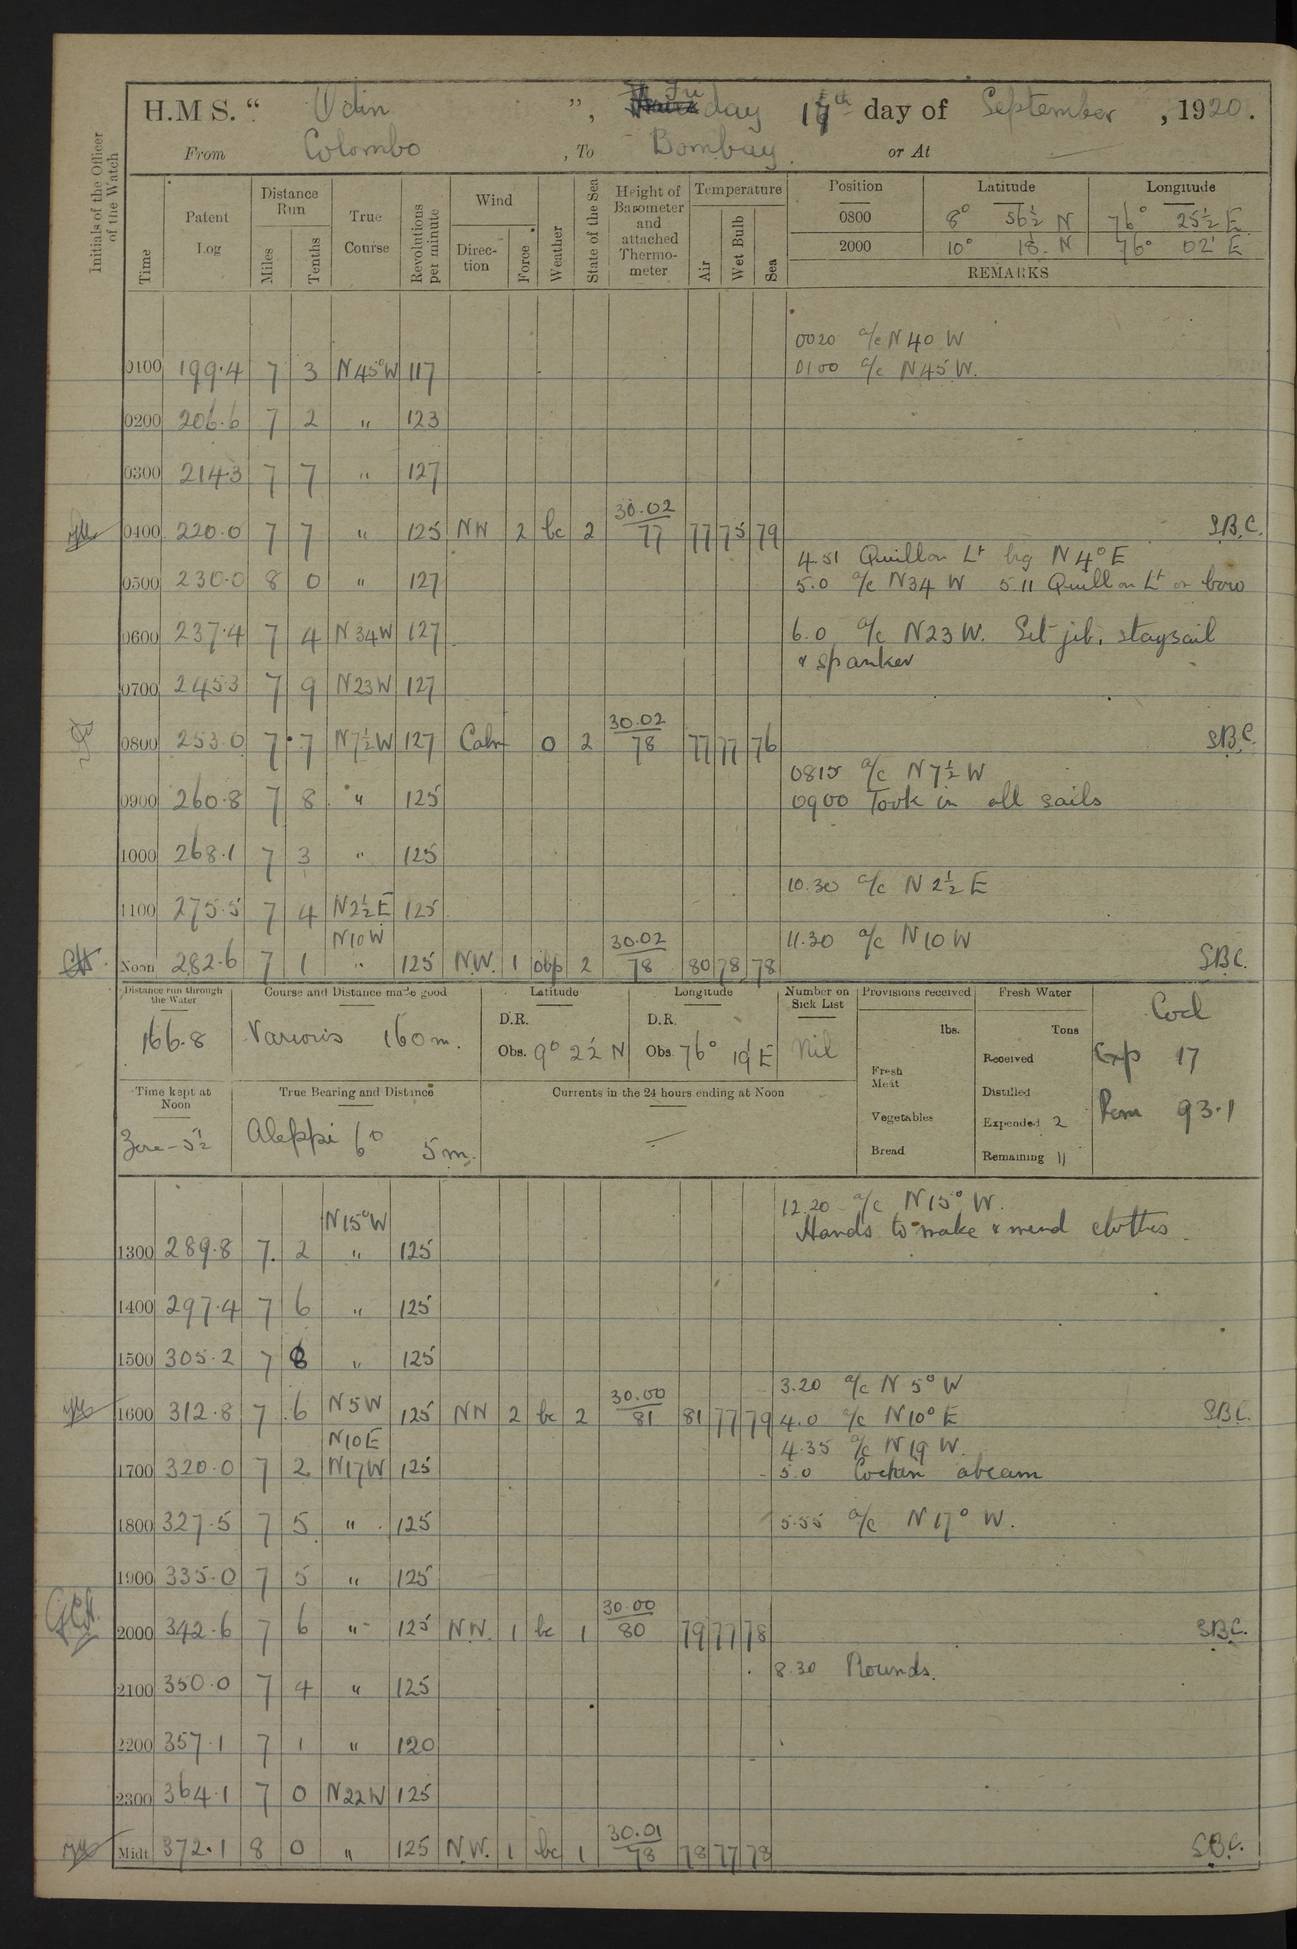 H.M.S. “ Odin ”, Friday 17th day of September, 1920.
From Colombo, To Bombay. or At —
Initials of the Officer of the Watch
Time
Patent Log
Distance Run
Miles
Tenths
True Course
Revolutions per minute
Wind
Direction
Force
Weather
State of the Sea
Height of Barometer and attached Thermometer
Temperature
Air
Wet Bulb
Sea
Position Latitude Longitude
0800 8° 56½ N 76° 25½ E
2000 10° 18. N 76° 02' E
REMARKS
0020 a/c N 40 W
0100 199.4 7 3 N45°W 117 0100 a/c N45 W.
0200 206.6 7 2 " 123
0300 214.3 7 7 " 127
0400 220.0 7 7 " 125 NW 2 bc 2 30.02/77 77 75 79 S.B.C.
4.51 Quillon Lt brg N 4° E
0500 230.0 8 0 " 127 5.0 a/c N34 W 5.11 Quillon Lt on bow
0600 237.4 7 4 N34W 127 6.0 a/c N23W. Set jib, staysail
& spanker
0700 245.3 7 9 N23W 127
0800 253.0 7 7 N7½W 127 Calm 0 2 30.02/78 77 77 76 S.B.C.
0815 a/c N7½W
0900 260.8 7 8 " 125 0900 Took in all sails
1000 268.1 7 3 " 125
10.30 a/c N 2½ E
1100 275.5 7 4 N2½E 125
N10W 11.30 a/c N10W
Noon 282.6 7 1 " 125 N.W. 1 obp 2 30.02/78 80 78 78 S.B.C.
Distance run through the Water
166.8
Course and Distance made good
Various 160 m.
Latitude
D.R.
Obs. 9° 2½ N
Longitude
D.R.
Obs. 76° 19' E
Number on Sick List
Nil
Provisions received
lbs.
Fresh Meat
Vegetables
Bread
Fresh Water
Tons
Received
Distilled
Expended 2
Remaining 11
Coal
Exp 17
Rem 93.1
Time kept at Noon
Zone -5½
True Bearing and Distance
Aleppi 6° 5 m.
Currents in the 24 hours ending at Noon
—
12.20 a/c N15° W.
N15°W Hands to make & mend clothes.
1300 289.8 7 2 " 125
1400 297.4 7 6 " 125
1500 305.2 7 8 " 125
3.20 a/c N 5° W
1600 312.8 7 6 N5W 125 NW 2 bc 2 30.00/81 81 77 79 4.0 a/c N10° E S.B.C.
N10E 4.35 a/c N19 W.
1700 320.0 7 2 N17W 125 5.0 Cochin abeam
1800 327.5 7 5 " 125 5.55 a/c N 17° W.
1900 335.0 7 5 " 125
2000 342.6 7 6 " 125 N.W. 1 bc 1 30.00/80 79 77 78 S.B.C.
8.30 Rounds.
2100 350.0 7 4 " 125
2200 357.1 7 1 " 120
2300 364.1 7 0 N22W 125
Midt. 372.1 8 0 " 125 N.W. 1 bc 1 30.01/78 78 77 78 S.B.C.